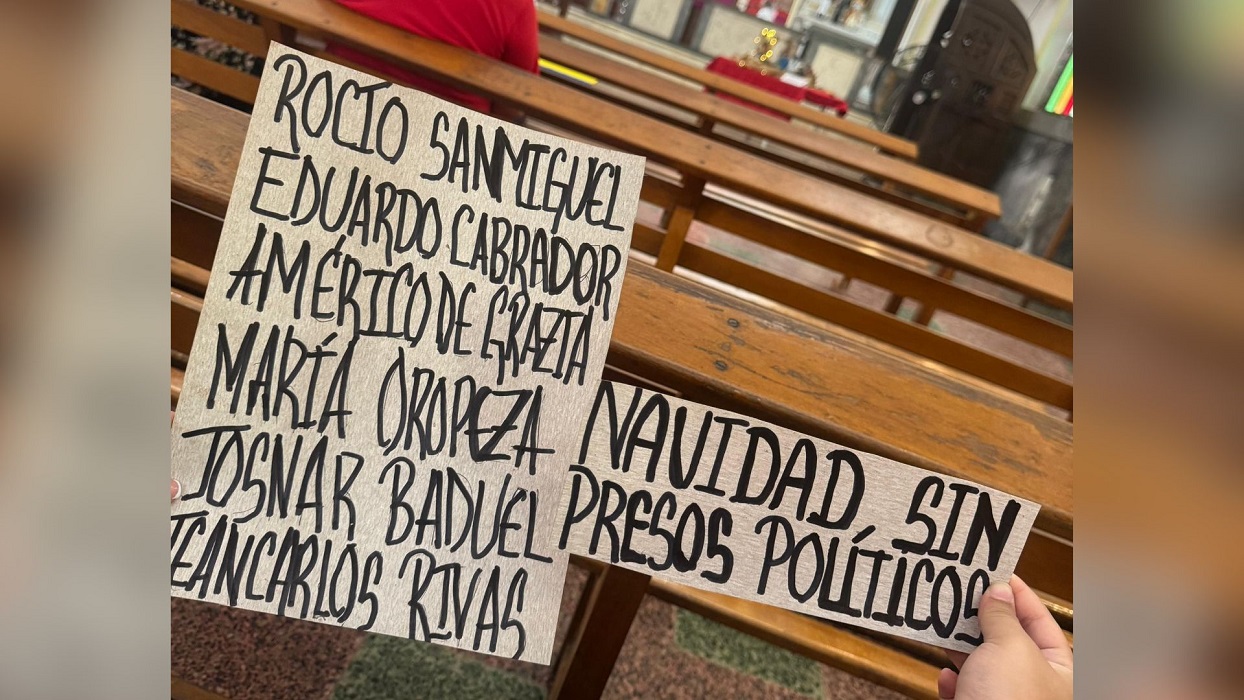 ROCÍO SANMIGUEL
EDUARDO LABRADOR
AMÉRICO DE GRAZIA
MARÍA OROPEZA
JOSNAR BADUEL
JEANCARLOS RIVAS
NAVIDAD SIN
PRESOS POLÍTICOS